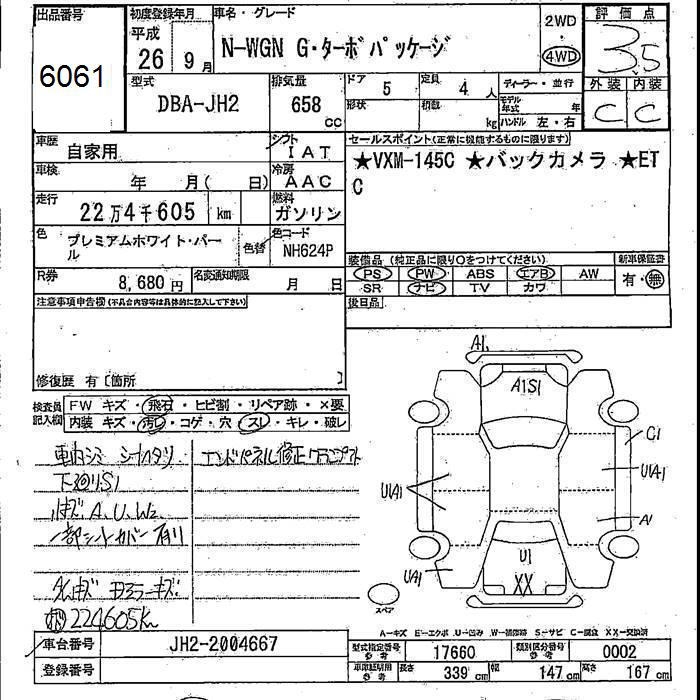 出品番号
6061
初度登録年月
平成
26年9月
車名・グレード
N-WGN G・ターボパッケージ
2WD
・
4WD
評価点
3.5
外装 内装
C C
型式
DBA-JH2
排気量
658
cc
ドア
5
定員
4人
形状
積数
kg
ディーラー・並行
モデル年式 年
ハンドル 左・右
車歴
自家用
シフト
IAT
車検
年 月( 日)
冷房
AAC
走行
22万4千605 km
燃料
ガソリン
色
プレミアムホワイト・パー
ル
色替
色コード
NH624P
R券
8,680円
名変通知期限
月 日
セールスポイント(正常に機能するものに限ります)
★VXM-145C ★バックカメラ ★ET
C
装備品(純正品に限り○をつけてください)
PS PW ABS エアB AW
SR ナビ TV カワ
新車保証書
有・無
後日品
注意事項申告欄(不具合内容等は具体的に記入して下さい)
修復歴 有〔箇所 〕
検査員
記入欄
FW キズ・飛石・ヒビ割・リペア跡・×要
内装 キズ・汚レ・コゲ・穴・スレ・キレ・破レ
車内シミ シートスタリ
エンドパネル修正
下廻リS1
小キズ A、U、W2
一部シートカバー有リ
224605Km
A1
A1S1
C1
U1A1
U1A1
A1
U1
XX
U1A1
スペア
A-キズ E-エクボ U-凹み W-補修跡 S-サビ C-腐食 XX-交換済
車台番号
JH2-2004667
登録番号
型式指定番号
参考
17660
類別区分番号
参考
0002
車庫証明用
参考
長さ
339cm
幅
147cm
高さ
167cm